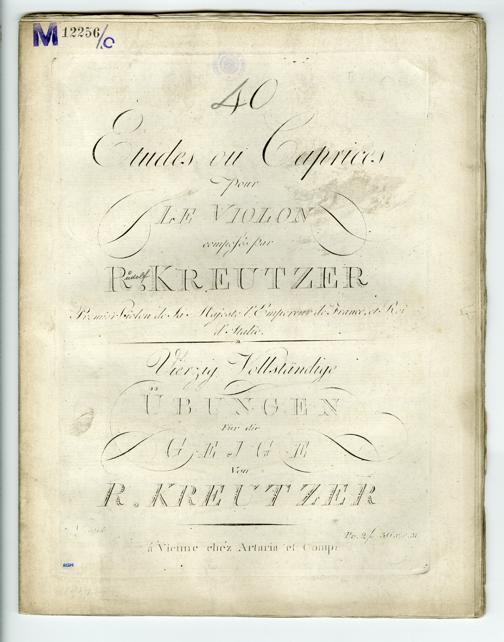 M 12256/C
40
Etudes ou Caprices
pour
LE VIOLON
composés par
Rudolf KREUTZER
Premier Violon de Sa Majesté l'Empereur de France, et Roi
d'Italie.
Vierzig Vollständige
ÜBUNGEN
Für die
GEIGE
Von
R. KREUTZER
à Vienne chéz Artaria et Comp: